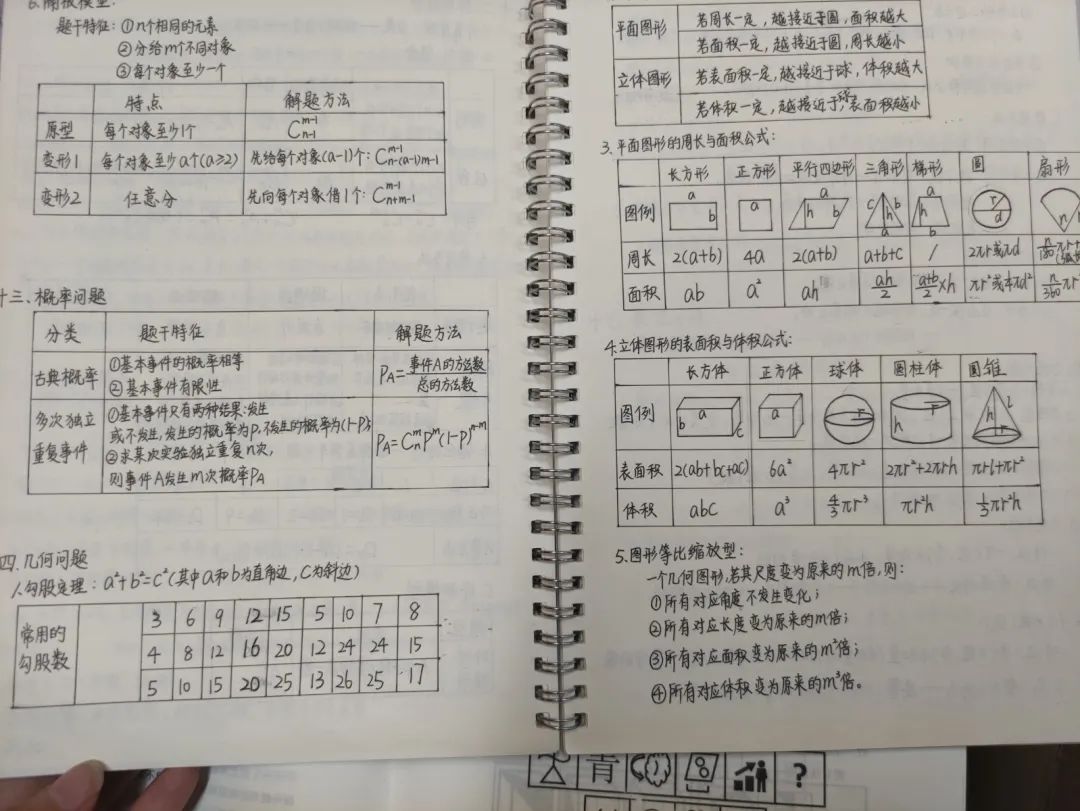 6.隔板模型:
题干特征:①n个相同的元素
②分给m个不同对象
③每个对象至少一个
特点 解题方法
原型 每个对象至少1个 C_{n-1}^{m-1}
变形1 每个对象至少a个(a≥2) 先给每个对象(a-1)个:C_{n-(a-1)m-1}^{m-1}
变形2 任意分 先向每个对象借1个:C_{n+m-1}^{m-1}
十三、概率问题
分类 题干特征 解题方法
古典概率 ①基本事件的概率相等
②基本事件有限性
P_A=事件A的方法数/总的方法数
多次独立
重复事件
①基本事件只有两种结果:发生
或不发生,发生的概率为P,不发生的概率为(1-P);
②求某次实验独立重复n次,
则事件A发生m次概率P_A
P_A=C_n^m P^m(1-P)^{n-m}
四.几何问题
1.勾股定理:a²+b²=c²(其中a和b为直角边,C为斜边)
常用的
勾股数
3 6 9 12 15 5 10 7 8
4 8 12 16 20 12 24 24 15
5 10 15 20 25 13 26 25 17
平面图形 若周长一定,越接近于圆,面积越大
若面积一定,越接近于圆,周长越小
立体图形 若表面积一定,越接近于球,体积越大
若体积一定,越接近于球,表面积越小
3.平面图形的周长与面积公式:
长方形 正方形 平行四边形 三角形 梯形 圆 扇形
图例 a b a a h b c h b a a h b r d n
周长 2(a+b) 4a 2(a+b) a+b+c / 2πr或πd
面积 ab a² ah ah/2 (a+b)/2×h πr²或¼πd² n/360 πr
4.立体图形的表面积与体积公式:
长方体 正方体 球体 圆柱体 圆锥
图例 a b c a r r h h l r
表面积 2(ab+bc+ac) 6a² 4πr² 2πr²+2πrh πrl+πr²
体积 abc a³ 4/3πr³ πr²h 1/3πr²h
5.图形等比缩放型:
一个几何图形,若其尺度变为原来的m倍,则:
①所有对应角度不发生变化;
②所有对应长度变为原来的m倍;
③所有对应面积变为原来的m²倍;
④所有对应体积变为原来的m³倍。
青
?